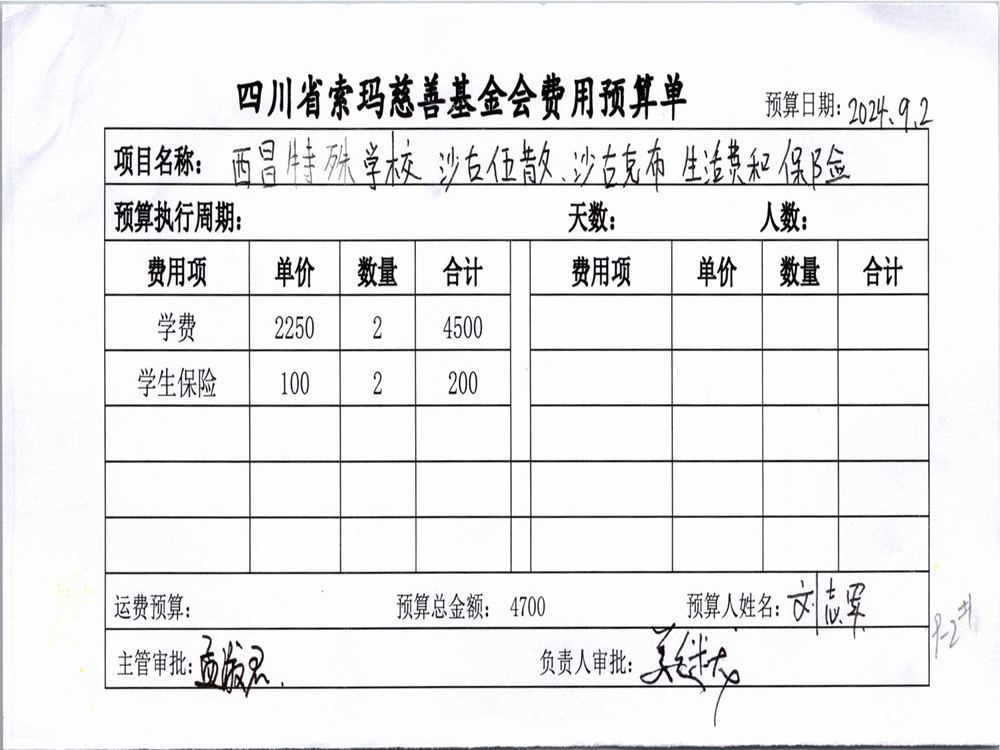 四川省索玛慈善基金会费用预算单
预算日期：2024.9.2
项目名称： 西昌特殊学校 沙古伍散、沙古克布 生活费和保险
预算执行周期： 天数： 人数：
费用项 单价 数量 合计 费用项 单价 数量 合计
学费 2250 2 4500
学生保险 100 2 200
运费预算： 预算总金额： 4700 预算人姓名：文志军
主管审批：
负责人审批：
9-2#